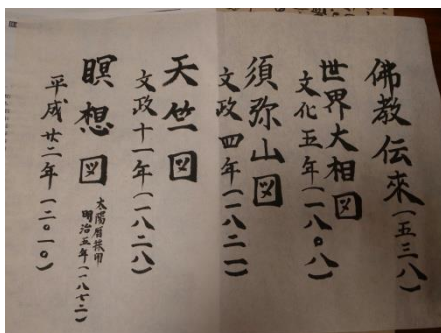 佛教伝來(五三八)
世界大相図
文化五年(一八〇八)
須弥山図
文政四年(一八二一)
天竺図
文政十一年(一八二八)
瞑想図
太陽暦採用
明治五年(一八七二)
平成廿二年(二〇一〇)